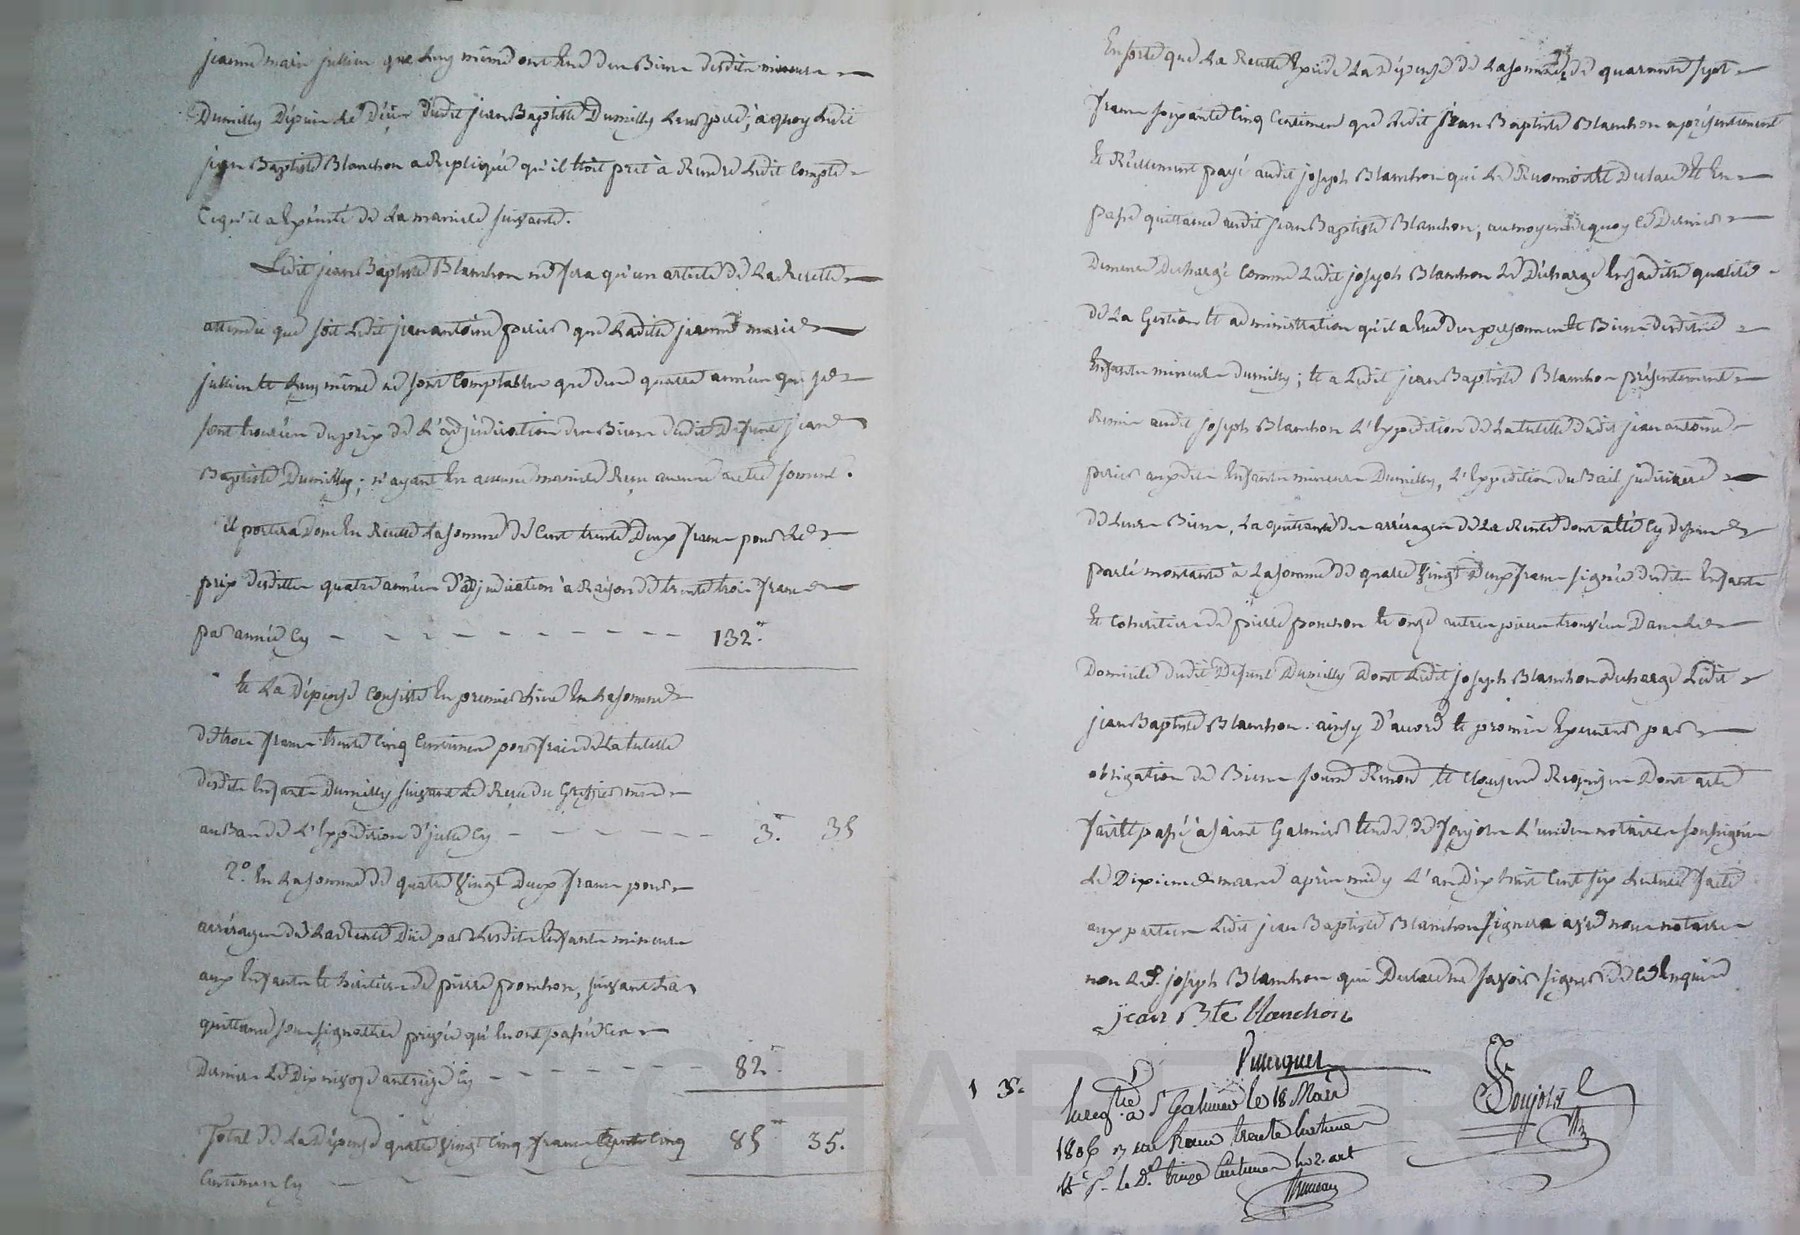 jeanne marie jullien que luy même ont eue des Biens desdits mineurs
Dumilly Depuis le Décès dudit jean Baptiste Dumilly leur pere; aquoy ledit
jean Baptiste Blanchon a Repliqué qu'il étoit prêt à Rendre ledit Compte
Cequ'il a Exécuté de La maniere suivante.
Ledit jean Baptiste Blanchon ne fera qu'un article de La Recette
attendu que soit Ledit jean antoine perier que Ladite jeanne marie
jullien et luy même ne sont Comptables que des quatre années qui se
sont trouvées du prix de L'adjudication des Biens dudit Défunt jean
Baptiste Dumilly; n'ayant En aucune maniere Reçu aucune autre somme.
il portera Donc En Recette La somme de Cent trente Deux francs pour le
prix desdittes quatre années D'adjudication à Raison de trente trois francs
par année Cy - - - - - - - - - 132.
Et La dépense Consiste En premier lieu En La somme
de trois francs trente Cinq Centimes pour frais de La tutelle
desdits Enfants Dumilly suivant le Reçu du Greffier mis
au Bas de L'Expédition d'icelle Cy - - - - - - 3. 35
2.° En La somme de quatre Vingt Deux francs pour
arrérages de La Rente Düe par Lesdits Enfants mineurs
aux Enfants et héritiers de pierre ponchon, suivant La
quittance sous signature privée qu'ils ont passée Ces
Derniers Le Dix an treize Cy - - - - - - 82.
Total de La Dépense quatre Vingt Cinq francs trente Cinq 85 35.
Centimes Cy - - - - -
Ensorte que La Recette Excède La Dépense de La somme de quarante six
francs soixante Cinq Centimes que Ledit jean Baptiste Blanchon a présentement
Et Réellement payé audit joseph Blanchon qui Le Reconnoit Declare Et En
passe quittance audit jean Baptiste Blanchon, au moyen dequoy Ce Dernier
Demeure Déchargé Comme Ledit joseph Blanchon Le Décharge En sadite qualité
de La Gestion Et administration qu'il a Eue des personnes Et Biens desdits
Enfants mineurs dumilly; Et a Ledit jean Baptiste Blanchon présentement
Remis audit joseph Blanchon L'Expédition de La tutelle dudit jean antoine
perier auxdits Enfants mineurs Dumilly, L'Expédition du Bail judiciaire
de Leurs Biens, La quittance des arrérages de La Rente dont a été Cy dessus
parlé montante à La somme de quatre Vingt Deux francs signée desdits Enfants
Et Cohéritiers de pierre ponchon Et onze autres pieces trouvées Dans Le
Domicile dudit Défunt Dumilly Dont Ledit joseph Blanchon décharge Ledit
jean Baptiste Blanchon. ainsy D'accord Et promis Exécuter par
obligation de Biens soumis Renon. Et Clauses Requises Dont acte
fait Et passé à saint Galmier Etude de foujols L'un des notaires soussignés
Le Dix de mars après midy L'an Dix huit Cent six Lecture faite
aux parties Ledit jean Baptiste Blanchon signera avec nous notaires
non Led. joseph Blanchon qui Déclare ne savoir signer de Ce Enquis
jean Bte blanchon
1 3.
Enreg.tré à S.t Galmier le 18 Mars
1806 R un franc trente Centimes
Foujols
CHARTEYRON